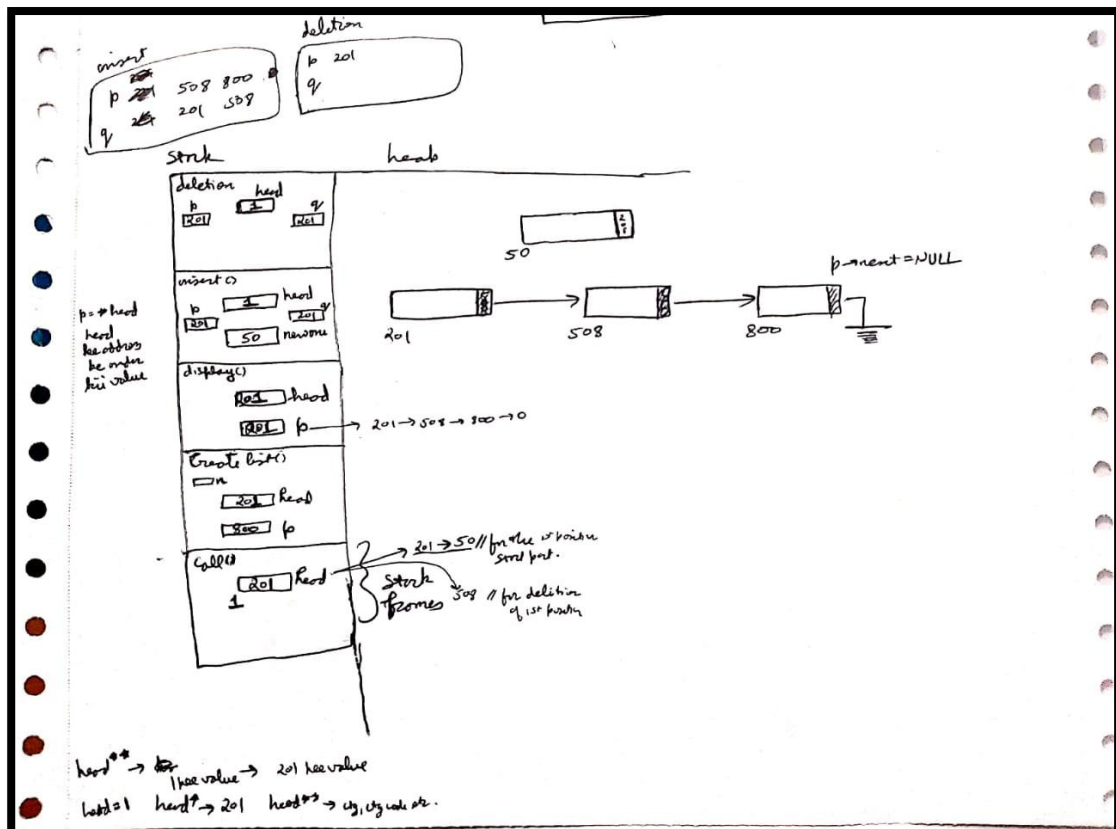 insert
p 508 800
q 201 508
deletion
p 201
q
stack heap
deletion
p head q
201 1 201
50
p→next=NULL
insert()
p 1 head q
201 201
50 newone
201 508 800
p=*head
head
ke address
ke andar
ki value
display()
201 head
201 p → 201→508→800→0
Create list()
n
201 head
800 p
Call()
201 head
1
201→50 // for the 1st position
508 // for deletion
of 1st position
Stack
frames
head** → 1 kee value → 201 kee value
head=1 head* → 201 head** →